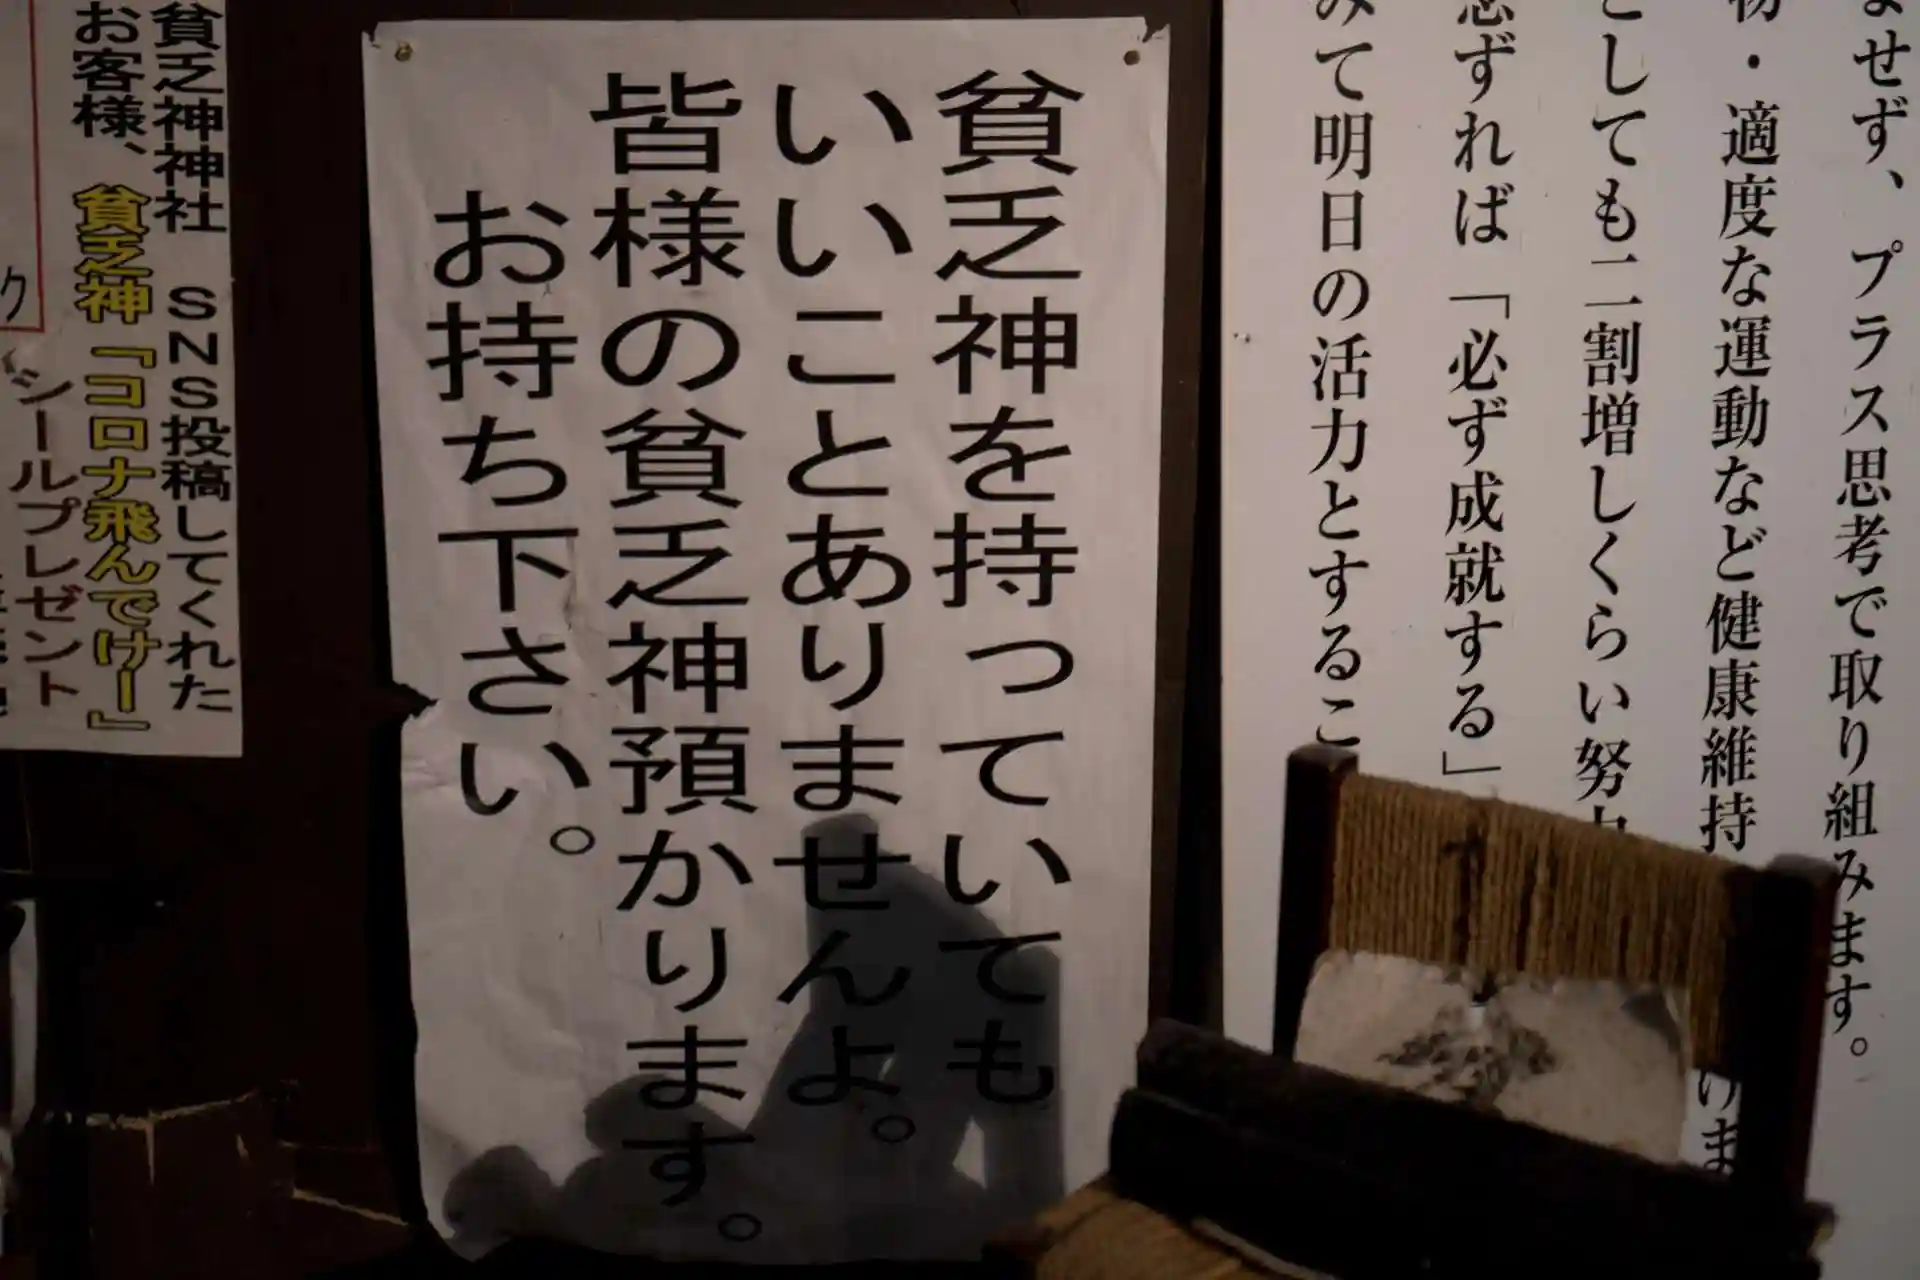 ませず、プラス思考で取り組みます。
物・適度な運動など健康維持
こしても二割増しくらい努
ずれば「必ず成就する」
みて明日の活力とするこ
けま
貧乏神を持っていても
いいことありませんよ。
皆様の貧乏神預かります。
お持ち下さい。
貧乏神神社 SNS投稿してくれた
お客様、貧乏神「コロナ飛んでけー」
シールプレゼント
ク